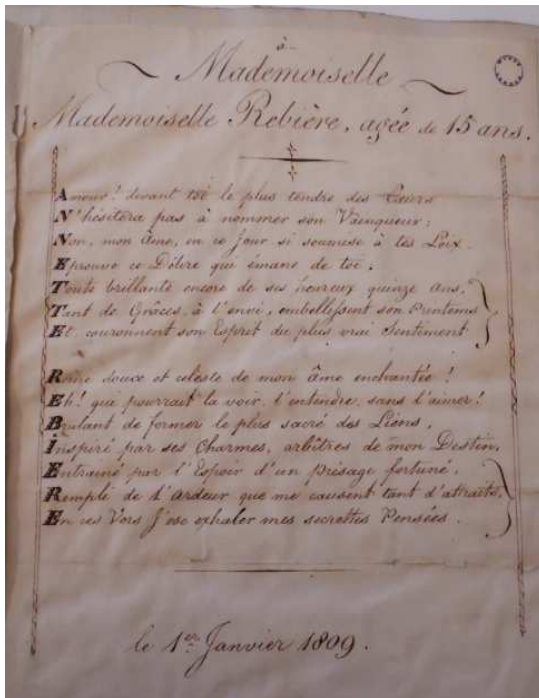 à
Mademoiselle
Mademoiselle Rebière, agée de 15 ans.
Amour! devant toi le plus tendre des Cœurs
N'hésitera pas à nommer son Vainqueur;
Non, mon âme, en ce jour si soumise à tes Loix
Eprouve ce Délire qui émane de toi;
Toute brillante encore de ses heureux quinze ans,
Tant de Grâces, à l'envi, embellissent son Printems
Et couronnent son Esprit du plus vrai Sentiment.
Reine douce et céleste de mon âme enchantée!
Eh! qui pourrait la voir, l'entendre, sans l'aimer!
Brulant de former le plus sacré des Liens,
Inspiré par ses Charmes, arbitres de mon Destin,
Entrainé par l'Espoir d'un présage fortuné,
Remplé de l'ardeur que me causent tant d'attraits,
En ces Vers j'ose exhaler mes secrettes Pensées.
le 1er Janvier 1809.